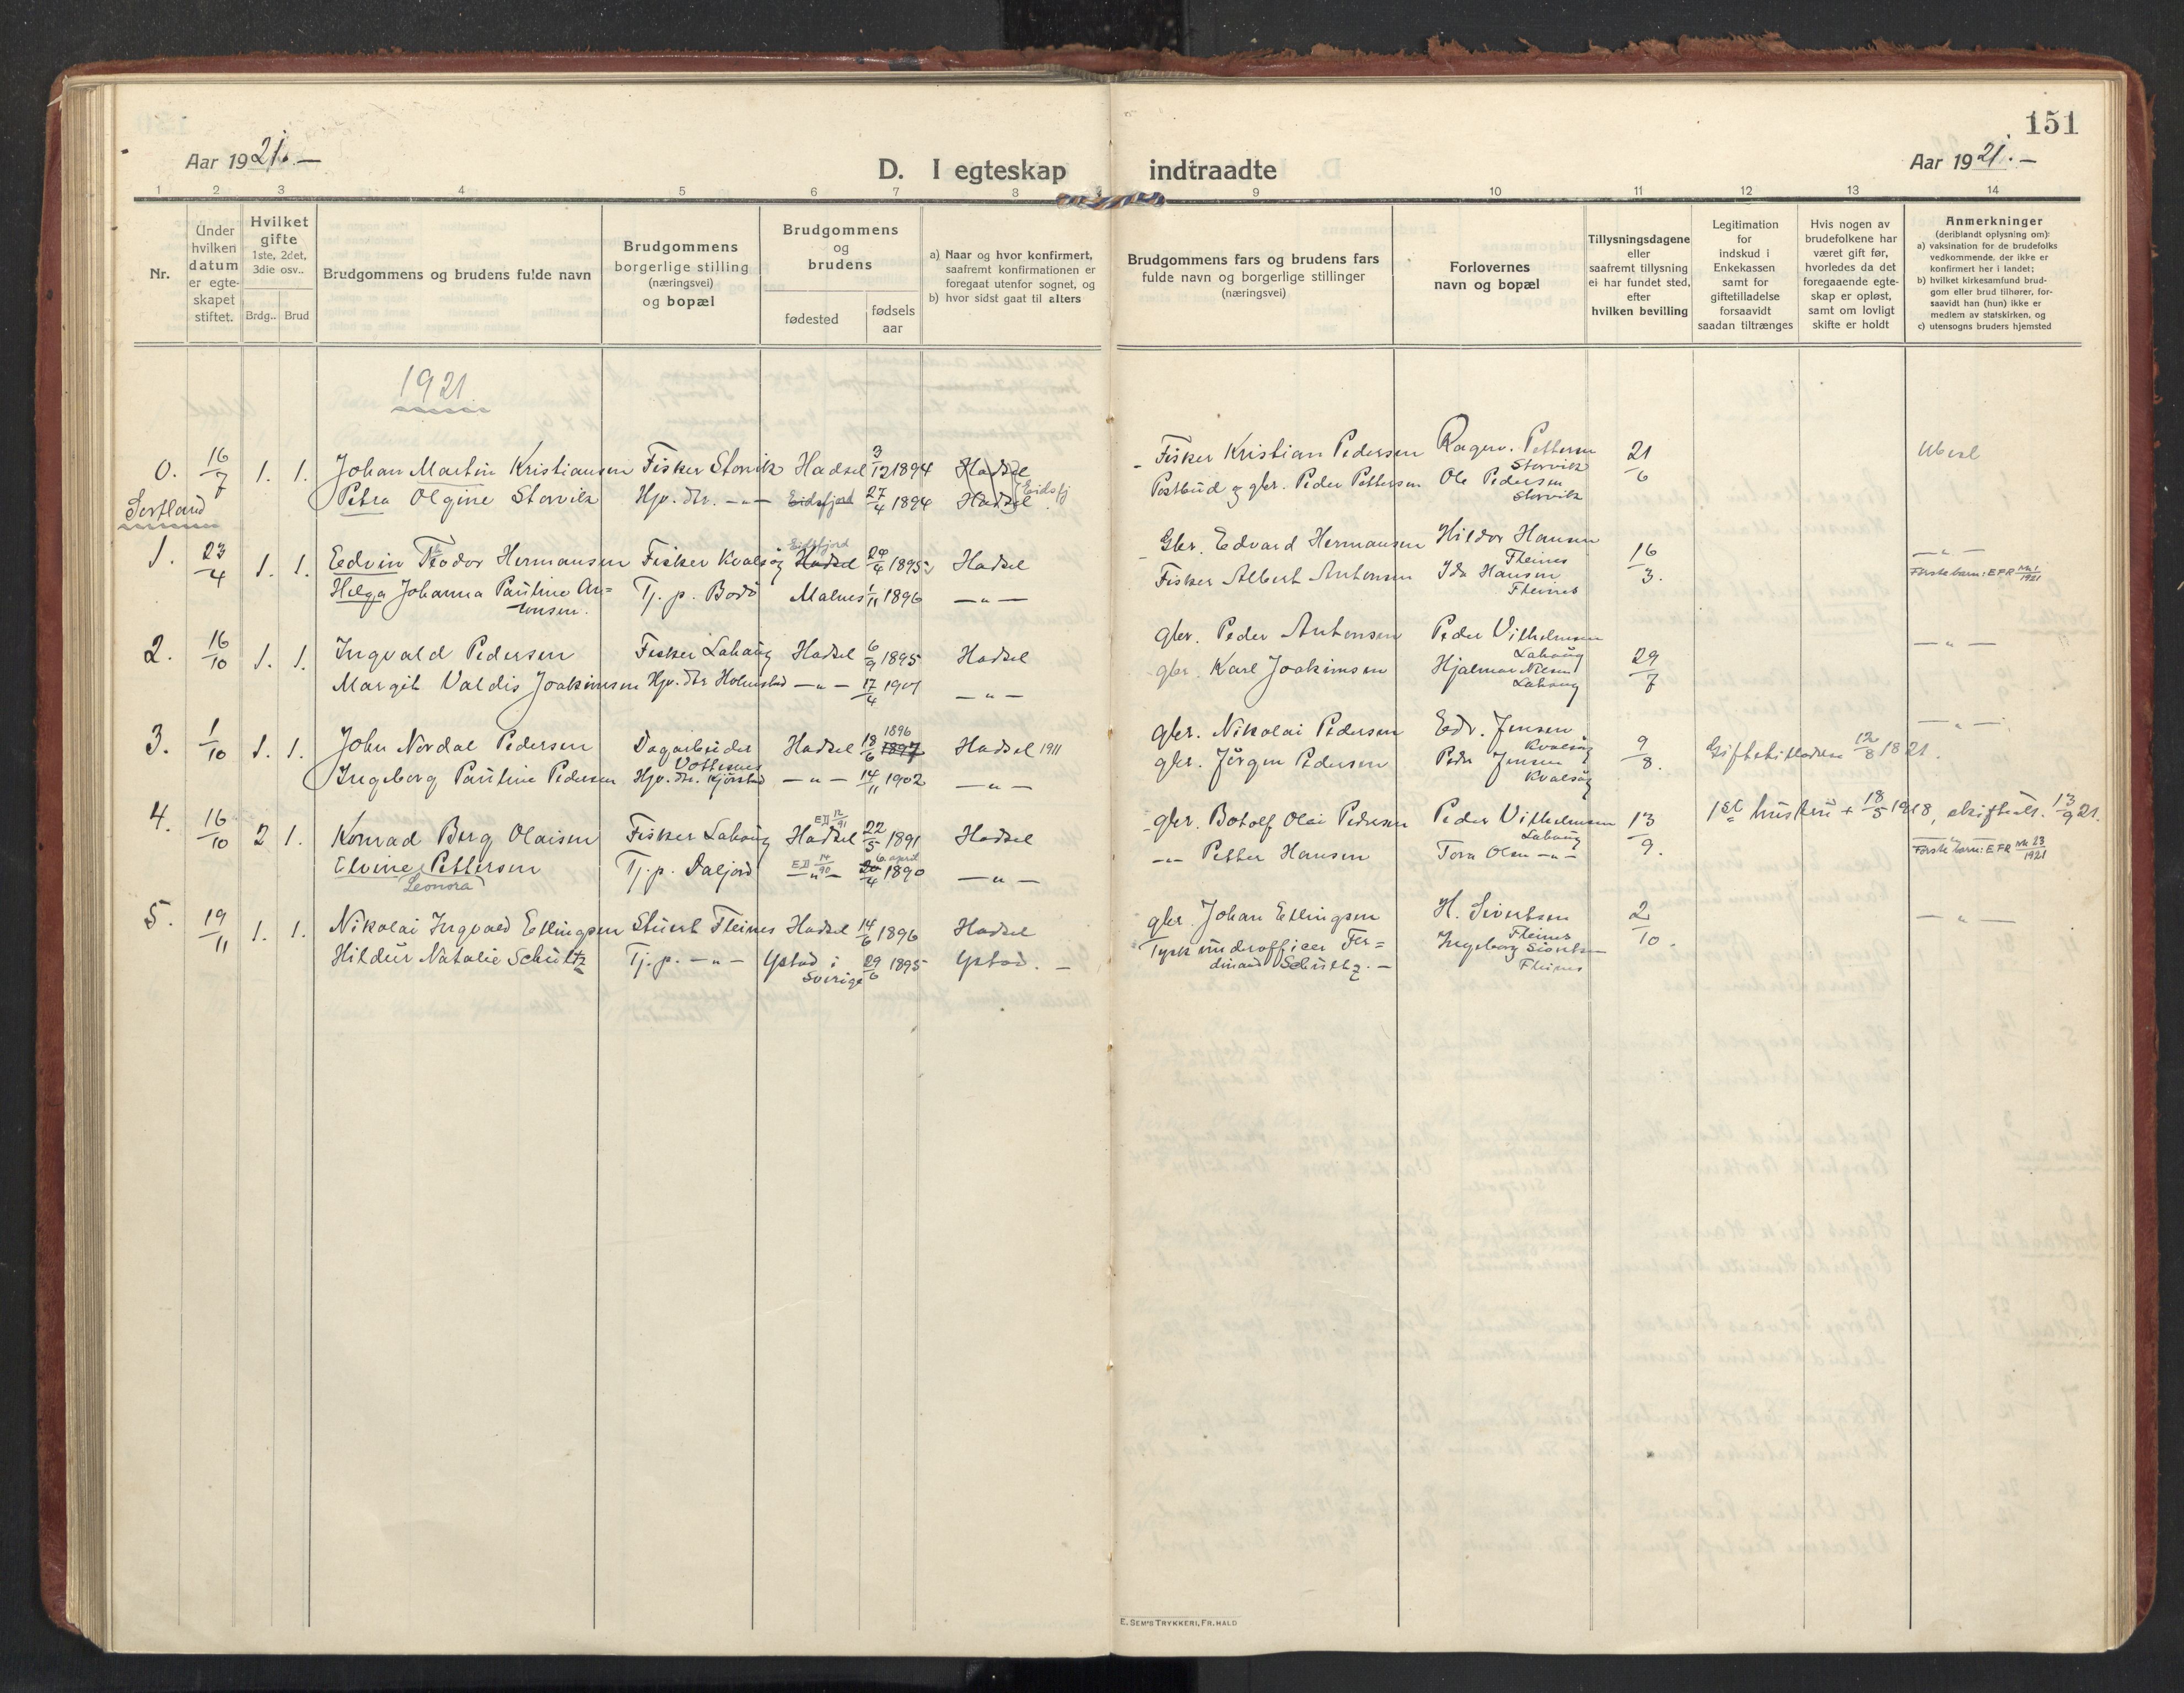 151
Aar 1921.—
D. I egteskap indtraadte
Aar 1921.—
1 2 3 4 5 6 7 8 9 10 11 12 13 14
Nr.
Under hvilken datum er egteskapet stiftet.
Hvilket gifte 1ste, 2det, 3die osv..
Brdg.. Brud
Brudgommens og brudens fulde navn
Brudgommens borgerlige stilling (næringsvei) og bopæl
Brudgommens og brudens
fødested
fødsels aar
a) Naar og hvor konfirmert, saafremt konfirmationen er foregaat utenfor sognet, og
b) hvor sidst gaat til alters
Brudgommens fars og brudens fars fulde navn og borgerlige stillinger (næringsvei)
Forlovernes navn og bopæl
Tillysningsdagene eller saafremt tillysning ei har fundet sted, efter hvilken bevilling
Legitimation for indskud i Enkekassen samt for giftetilladelse forsaavidt saadan tiltrænges
Hvis nogen av brudefolkene har været gift før, hvorledes da det foregaaende egteskap er opløst, samt om lovligt skifte er holdt
Anmerkninger (deriblandt oplysning om):
a) vaksination for de brudefolks vedkommende. der ikke er konfirmert her i landet;
b) hvilket kirkesamfund brudgom eller brud tilhører, forsaavidt han (hun) ikke er medlem av statskirken, og
c) utensogns bruders hjemsted
1921
0. 16/7 1. 1. Johan Martin Kristiansen Fisker Storvik Hadsel 3/12 1894 Hadsel
Petra Olgine Storvik Hjv. dtr. —"— Eidsfjord 27/4 1894 Hadsel Eidsfj.
Sortland
Fisker Kristian Pedersen Ragnv. Pettersen Storvik 21/6
Postbud og gbr. Peder Pettersen Ole Pedersen Storvik
1. 23/4 1. 1. Edvin Teodor Hermansen Fisker Kvalsøg Hadsel Eidsfjord 24/4 1895 Hadsel
Helga Johanna Pauline Antonsen. Tj. p. Bodø Malnes 1/11 1896 —"—
Gbr. Edvard Hermansen Hildor Hansen Fleines 16/3. —"—
Fisker Albert Antonsen Ida Hansen Fleines Første barn: EFR Nr. 1/1921
2. 16/10 1. 1. Ingvald Pedersen Fisker Lahaug Hadsel 6/9 1895 Hadsel
Margit Valdis Joakimsen Hjv. dtr Holmstad —"— 17/4 1901 —"—
gbr. Peder Antonsen Peder Vilhelmsen Lahaug 29/7 —"—
gbr. Karl Joakimsen Hjalmar Nilsen Lahaug
3. 1/10 1. 1. John Nordal Pedersen Dagarbeider Vottesnes Hadsel 18/6 1897 1896 Hadsel 1911
Ingeborg Pauline Pedersen Hjv. dtr. Kjørstad —"— 14/11 1902 —"—
gbr. Nikolai Pedersen Edv. Jensen Kvalsøg 9/8. Giftetilladelse 12/8 1821. —"—
gbr. Jørgen Pedersen Peder Jensen Kvalsøg
4. 16/10 2 1. Konrad Berg Olaisen Fisker Lahaug Hadsel 22/5 1891 Hadsel
Elvine Pettersen Leonora Tj. p. Daljord —"— 20/4 6. april 1890 —"—
gbr. Botolf Olai Pedersen Peder Vilhelmsen Lahaug 13/9. 1ste hustru + 18/5 1918, skifteatt. 13/9 21.
—"— Petter Hansen Tora Olsen —"— Første barn: EFR Nr. 23/1921
5. 19/11 1. 1. Nikolai Ingvald Ellingsen Stuert Fleines Hadsel 14/6 1896 Hadsel
Hildur Natalie Schultz Tj. p. —"— Ystad i Sverige 29/6 1895 Ystad. —
gbr. Johan Ellingsen H. Sivertsen Fleines 2/10. —"—
Tysk underofficer Ferdinand Schultz. — Ingeborg Sivertsen Fleines
E. SEM'S TRYKKERI, FR.HALD